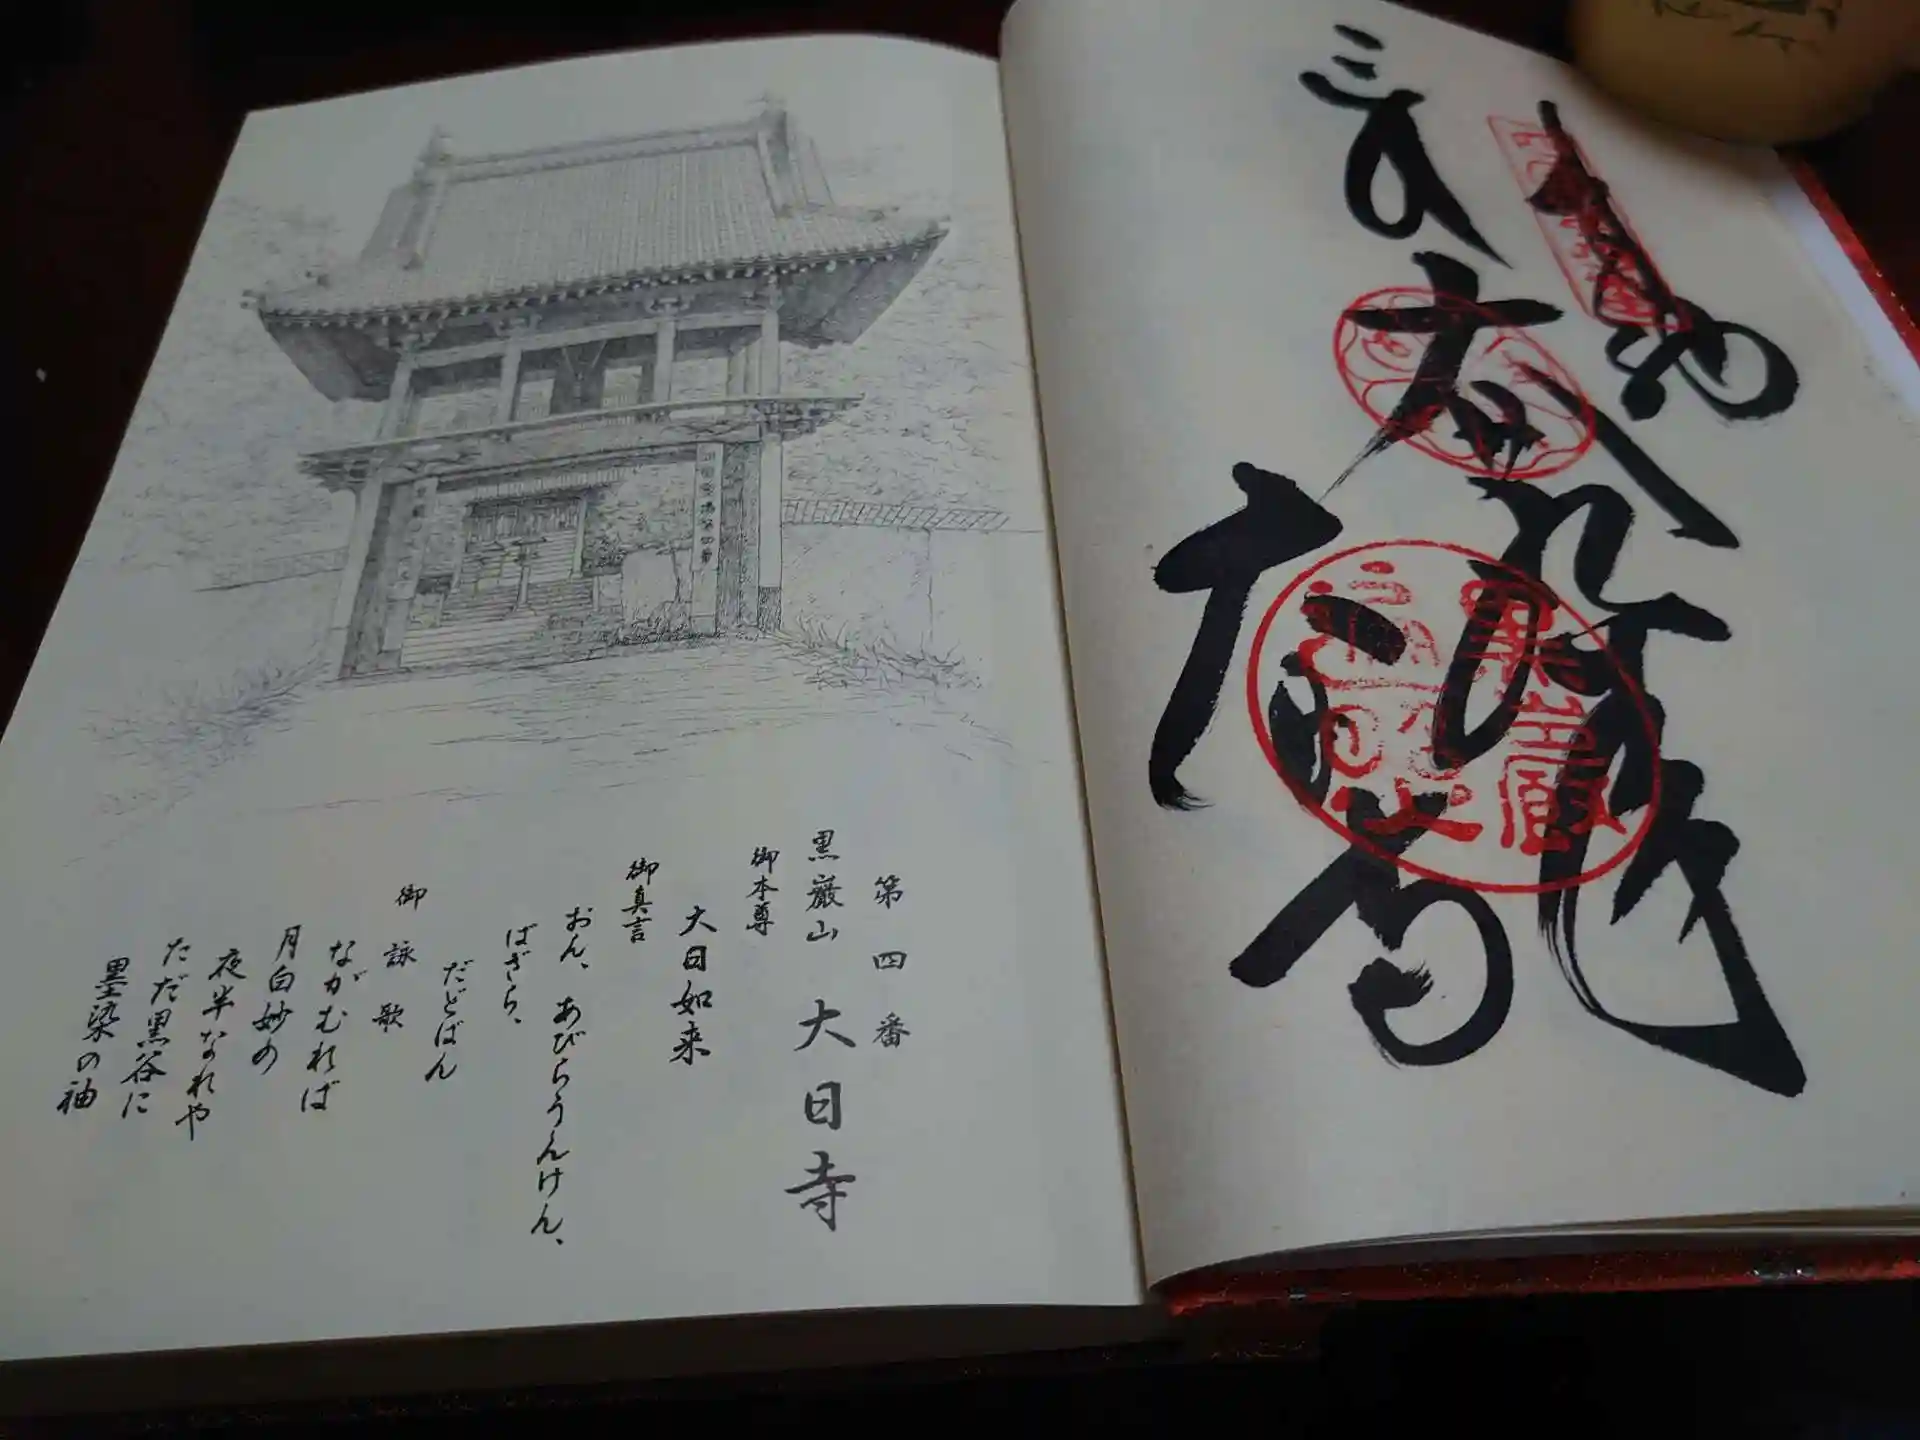 奉納
大日如来
大日寺
黒巌山
第四番
黒巌山 大日寺
御本尊
大日如来
御真言
おん、あびらうんけん、
ばざら、
だどばん
御詠歌
ながむれば
月白妙の
夜半なれや
ただ黒谷に
墨染の袖